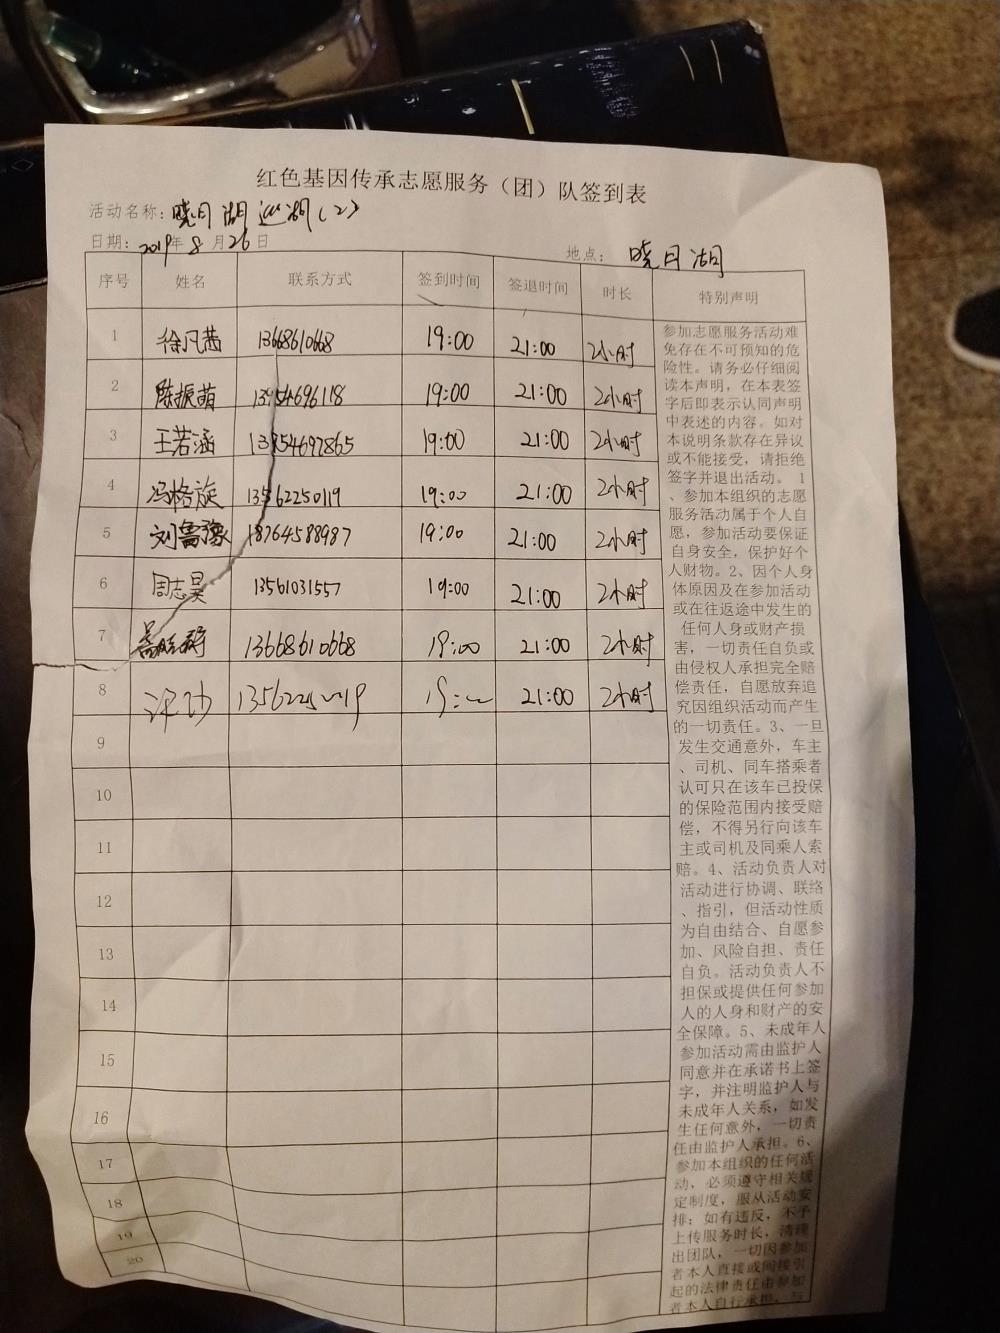 红色基因传承志愿服务（团）队签到表
活动名称：晓月湖巡湖(2)
日期：2019年8月26日 地点：晓月湖
序号 姓名 联系方式 签到时间 签退时间 时长 特别声明
1 徐凡茜 13668610668 19:00 21:00 2小时
2 陈振萌 13954696118 19:00 21:00 2小时
3 王若涵 13954697865 19:00 21:00 2小时
4 冯格旋 13562250119 19:00 21:00 2小时
5 刘鲁豫 18764588987 19:00 21:00 2小时
6 周志昊 13561031557 19:00 21:00 2小时
7 13668610668 19:00 21:00 2小时
8 13562250119 19:00 21:00 2小时
9
10
11
12
13
14
15
16
17
18
19
20
参加志愿服务活动难
免存在不可预知的危
险性。请务必仔细阅
读本声明，在本表签
字后即表示认同声明
中表述的内容。如对
本说明条款存在异议
或不能接受，请拒绝
签字并退出活动。 1
、参加本组织的志愿
服务活动属于个人自
愿，参加活动要保证
自身安全，保护好个
人财物。2、因个人身
体原因及在参加活动
或在往返途中发生的
任何人身或财产损
害，一切责任自负或
由侵权人承担完全赔
偿责任，自愿放弃追
究因组织活动而产生
的一切责任。3、一旦
发生交通意外，车主
、司机、同车搭乘者
认可只在该车已投保
的保险范围内接受赔
偿，不得另行向该车
主或司机及同乘人索
赔。4、活动负责人对
活动进行协调、联络
、指引，但活动性质
为自由结合、自愿参
加、风险自担、责任
自负。活动负责人不
担保或提供任何参加
人的人身和财产的安
全保障。5、未成年人
参加活动需由监护人
同意并在承诺书上签
字，并注明监护人与
未成年人关系，如发
生任何意外，一切责
任由监护人承担。6、
参加本组织的任何活
动，必须遵守相关规
定制度，服从活动安
排；如有违反，不予
上传服务时长，清理
出团队，一切因参加
者本人直接或间接引
起的法律责任由参加
者本人自行承担，与